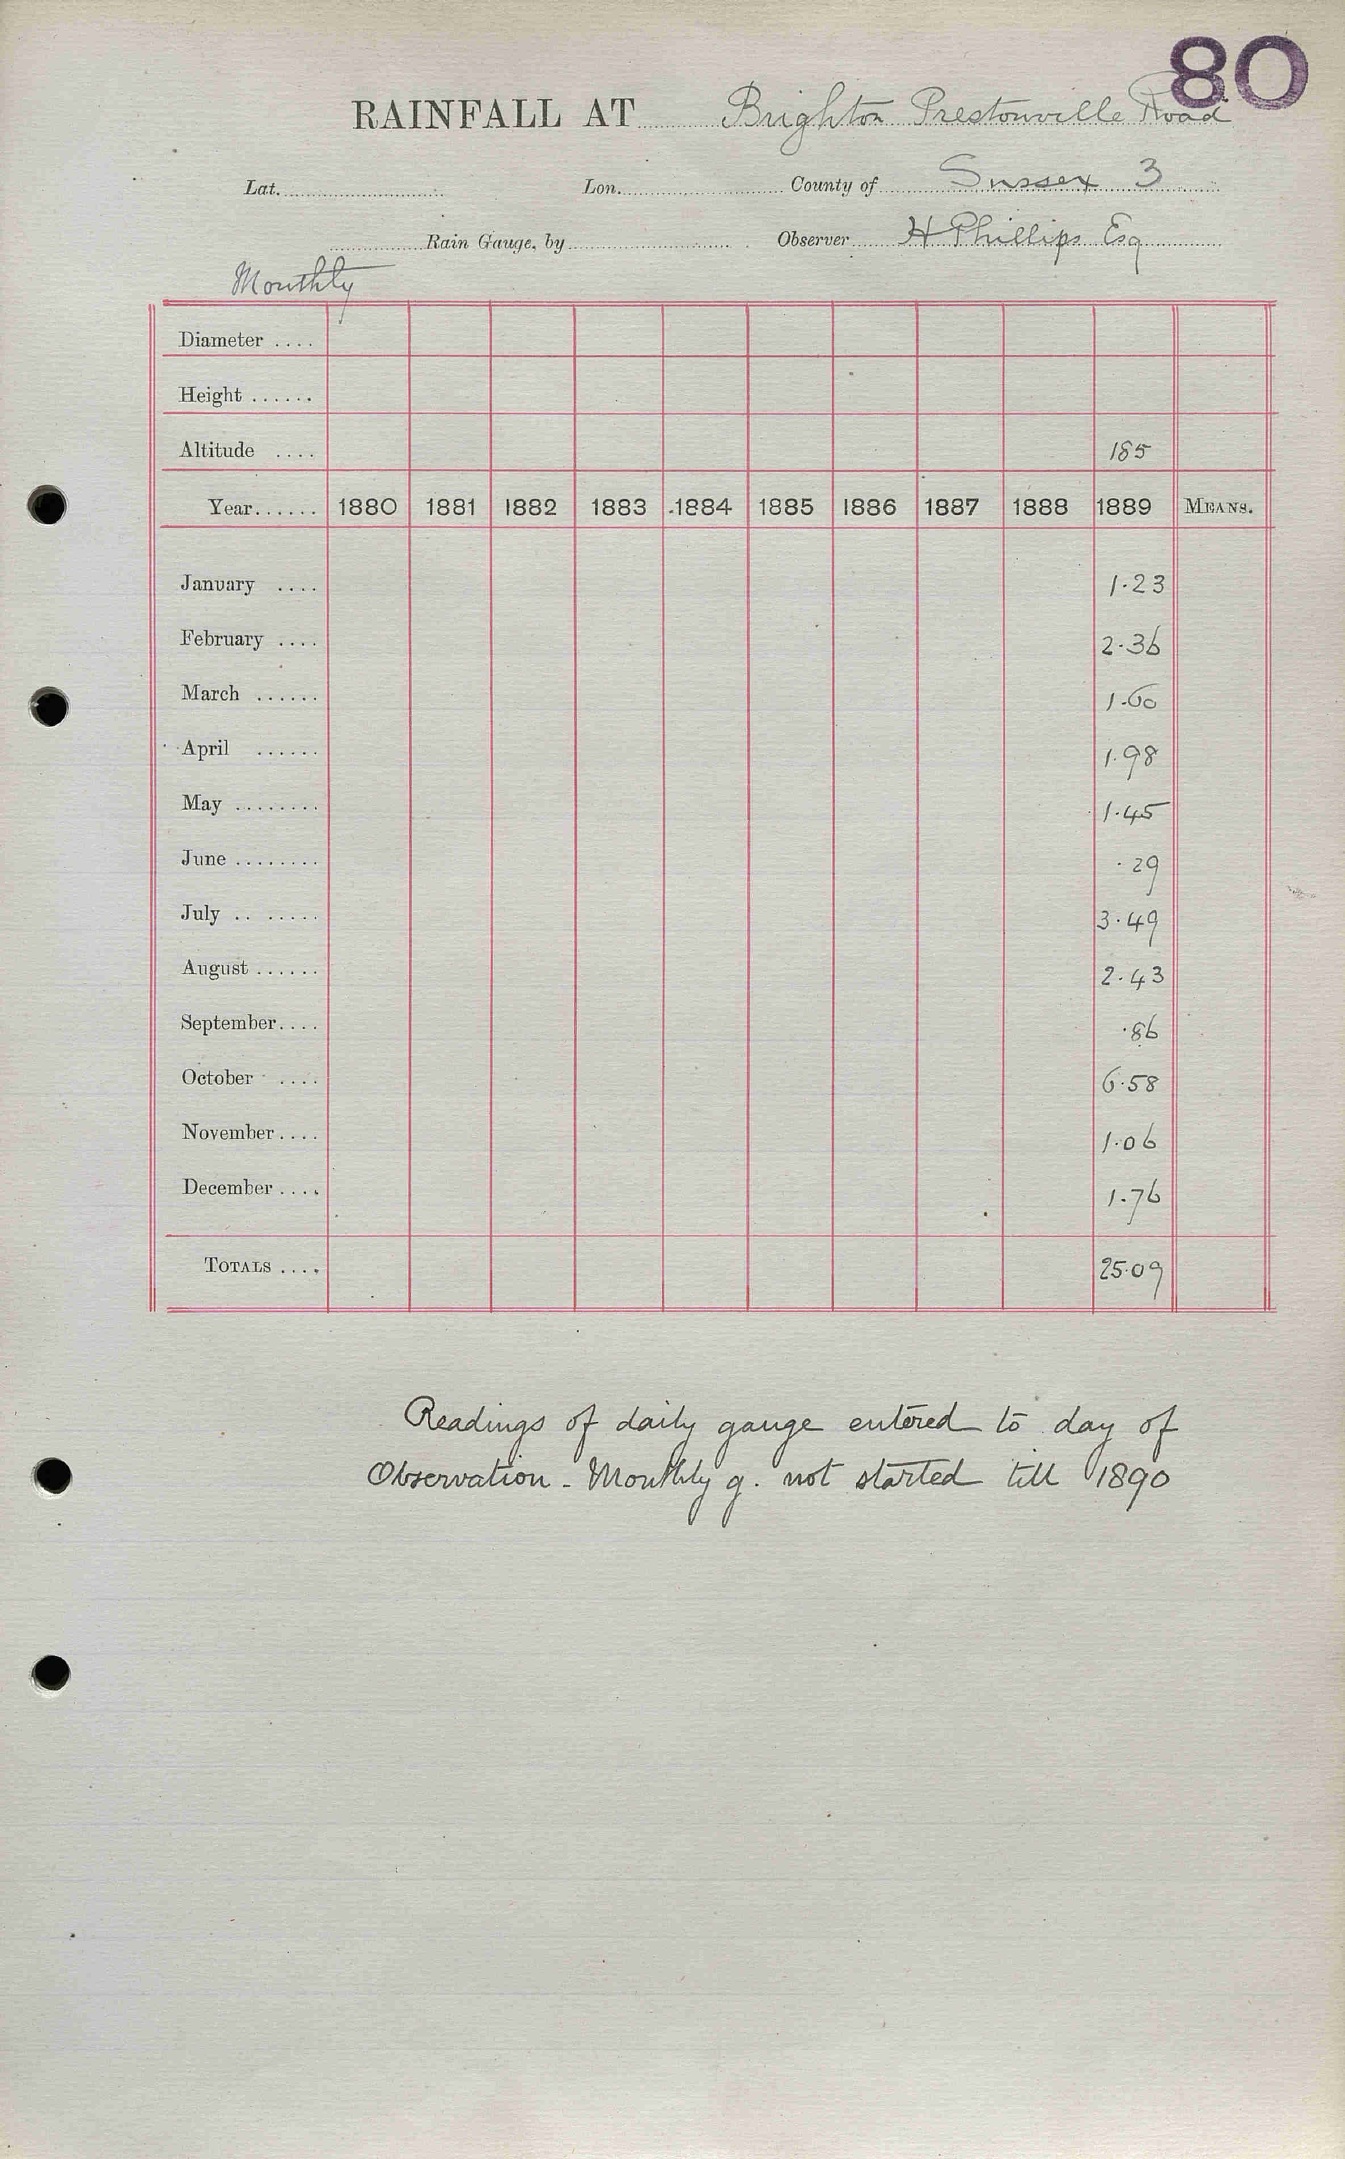 80
RAINFALL AT Brighton Prestonville Road
Lat. Lon. County of Sussex 3
Rain Gauge, by Observer H Phillips Esq
Monthly
Diameter ....
Height ......
Altitude .... 185
Year...... 1880 1881 1882 1883 1884 1885 1886 1887 1888 1889 MEANS.
January .... 1.23
February .... 2.36
March ...... 1.60
April ...... 1.98
May ........ 1.45
June ........ .29
July .. ..... 3.49
August ...... 2.43
September.... .86
October .... 6.58
November.... 1.06
December .... 1.76
TOTALS .... 25.09
Readings of daily gauge entered to day of
Observation - Monthly g. not started till 1890